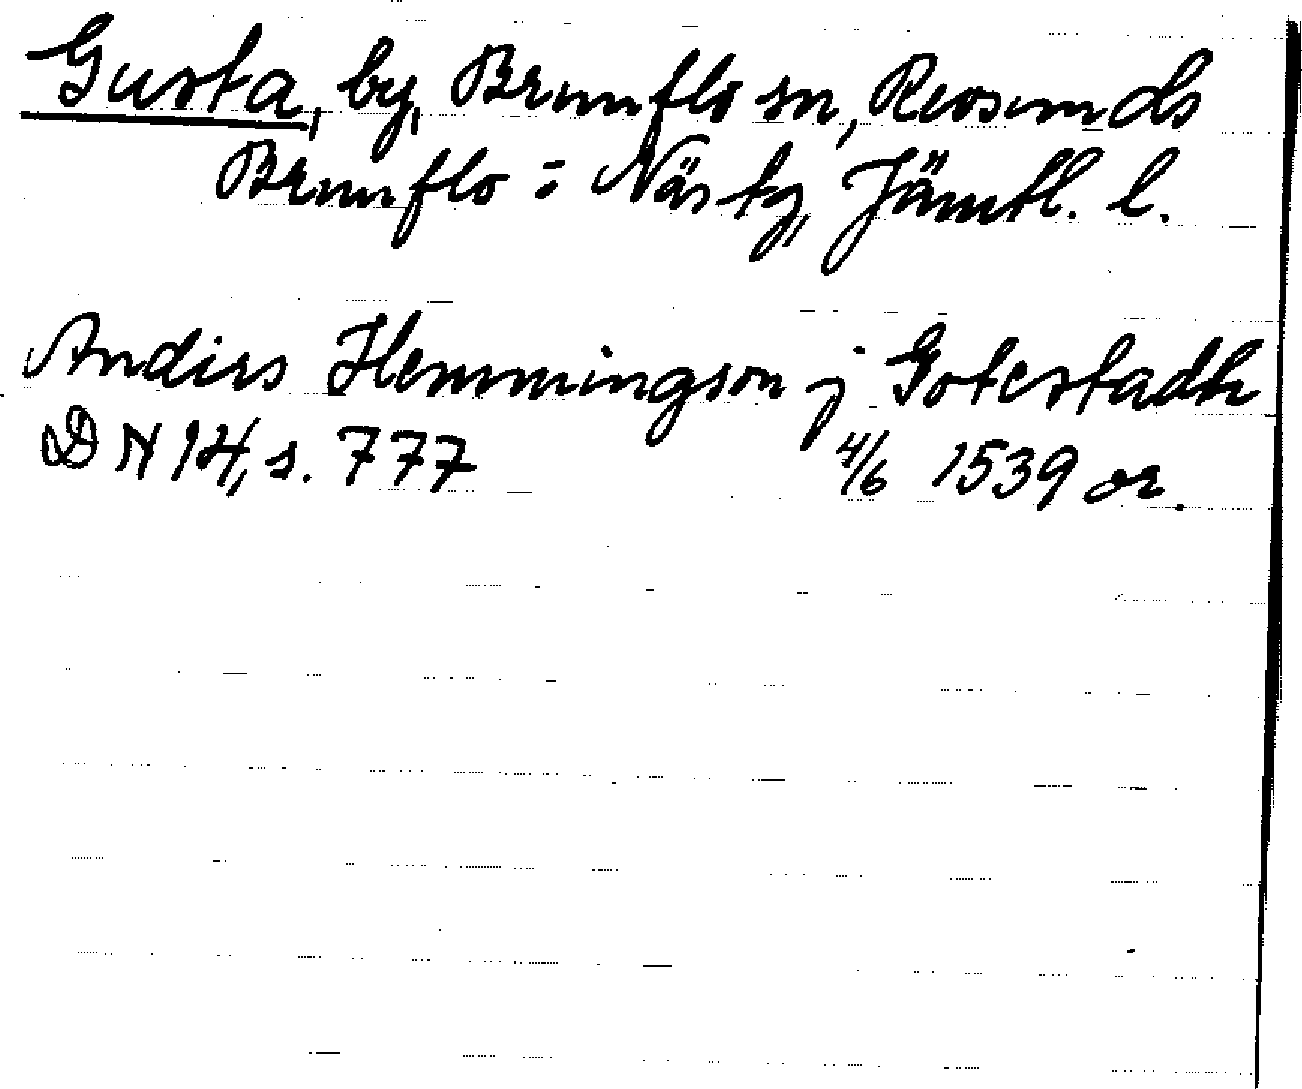 Gusta, by, Brunflo sn, Revsunds
Brunflo o Näs tg, Jämtl. l.
Anders Hemmingson j Gotestadh
DN 14, s. 777 4/6 1539 or.